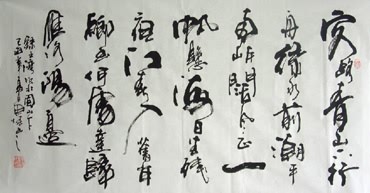 客路青山下行
舟綠水前潮平
兩岸闊風正一
帆懸海日生殘
夜江春入舊年
鄉書何處達歸
雁洛陽邊
錄王灣次北固山下